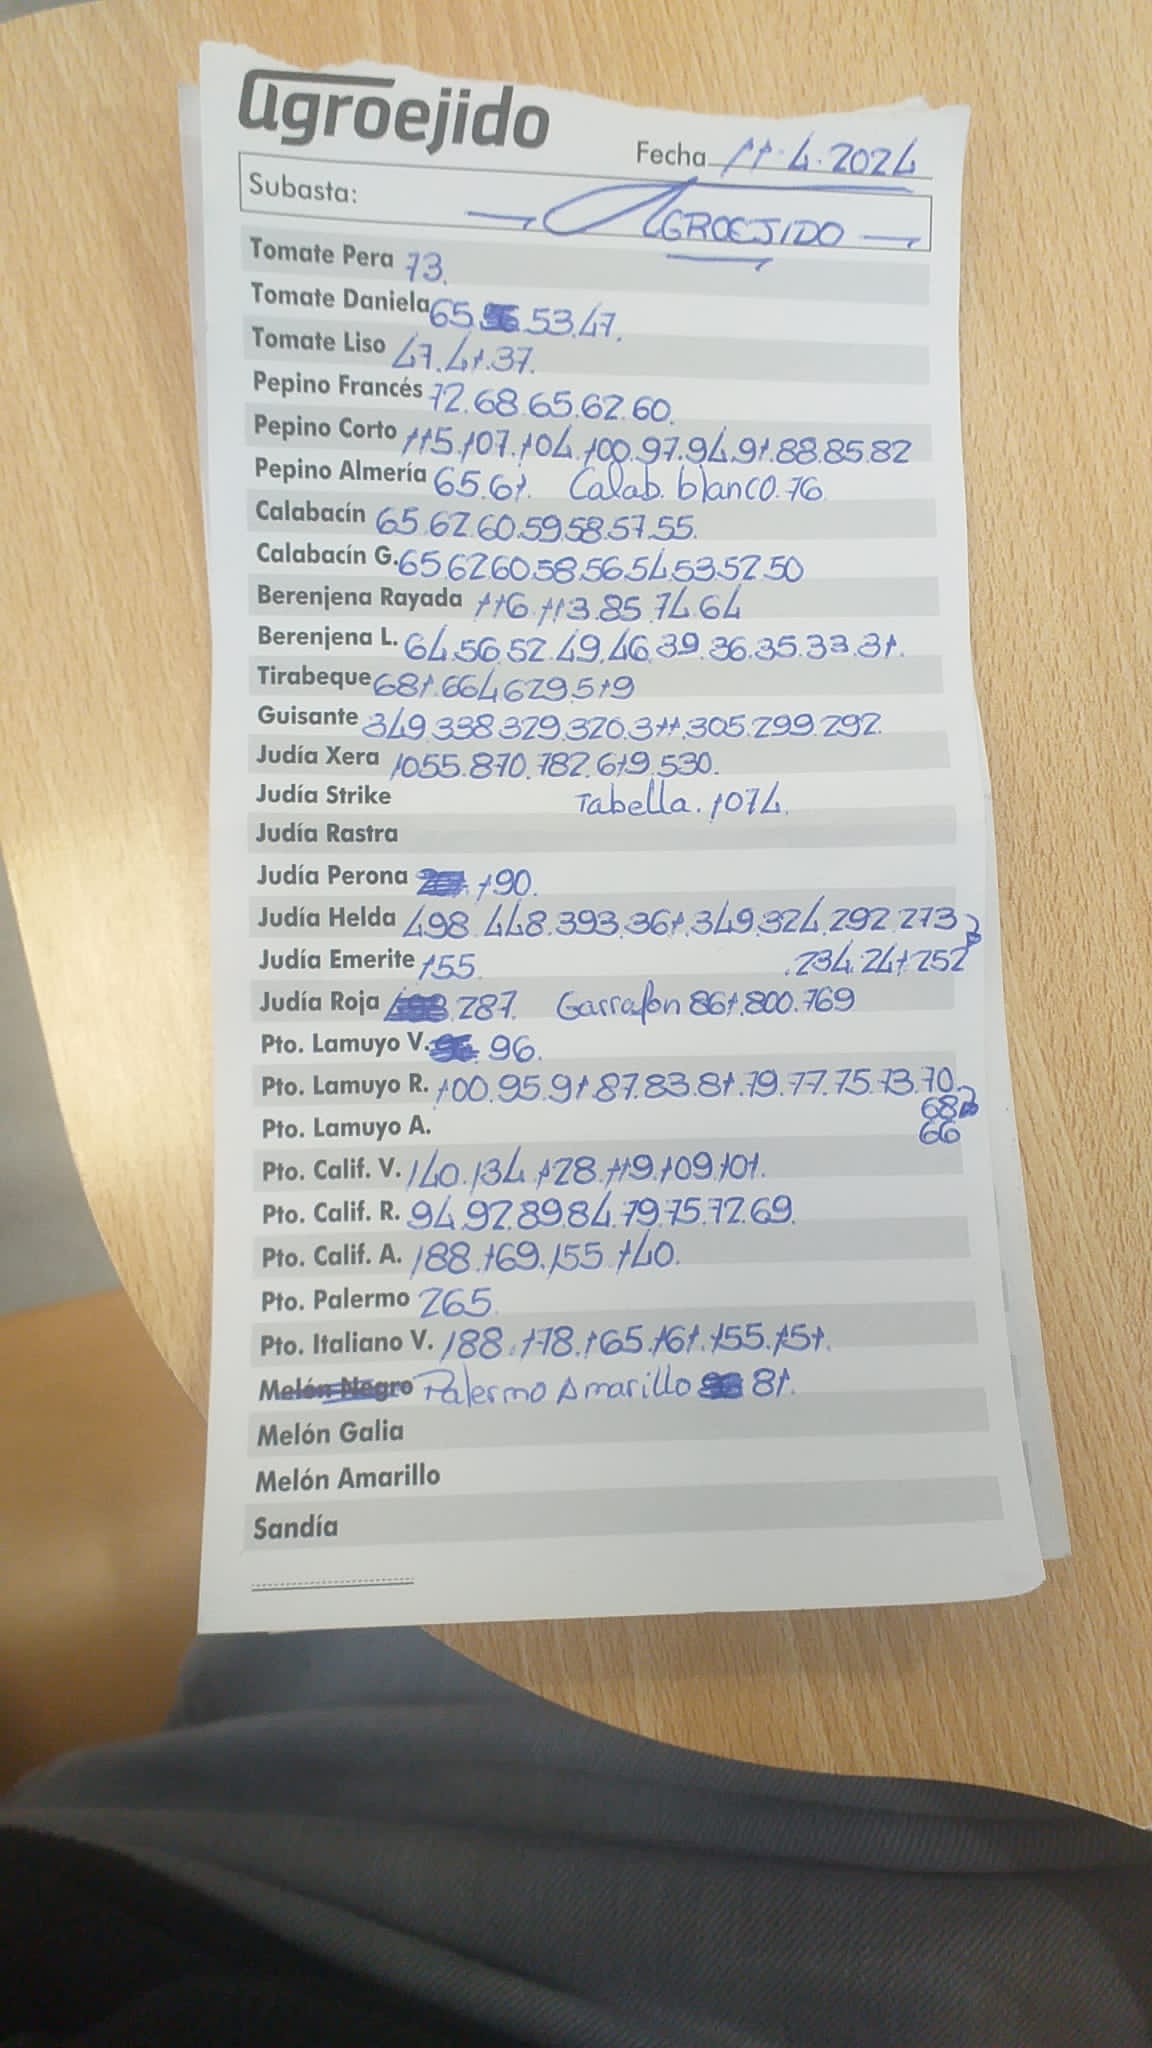 agroejido
Fecha 11.4.2024
Subasta: AGROEJIDO
Tomate Pera 73.
Tomate Daniela 65. 53.47.
Tomate Liso 47.41.37.
Pepino Francés 72.68.65.62.60.
Pepino Corto 115.107.104.100.97.94.91.88.85.82
Pepino Almería 65.61. Calab. blanco.76
Calabacín 65.62.60.59.58.57.55.
Calabacín G. 65.62.60.58.56.54.53.52.50
Berenjena Rayada 116.113.85.74.64
Berenjena L. 64.56.52.49.46.39.36.35.33.31.
Tirabeque 681.664.629.519
Guisante 349.338.329.320.311.305.299.292.
Judía Xera 1055.870.782.619.530.
Judía Strike Tabella.1074.
Judía Rastra
Judía Perona 190.
Judía Helda 498.448.393.361.349.324.292.273
Judía Emerite 155. .234.241.252
Judía Roja 287. Garrafon 861.800.769
Pto. Lamuyo V. 96.
Pto. Lamuyo R. 100.95.91.87.83.81.79.77.75.73.70.
68
Pto. Lamuyo A. 66
Pto. Calif. V. 140.134.128.119.109.101.
Pto. Calif. R. 94.92.89.84.79.75.72.69.
Pto. Calif. A. 188.169.155.140.
Pto. Palermo 265.
Pto. Italiano V. 188.178.165.161.155.151.
Melón Negro Palermo Amarillo 81.
Melón Galia
Melón Amarillo
Sandía